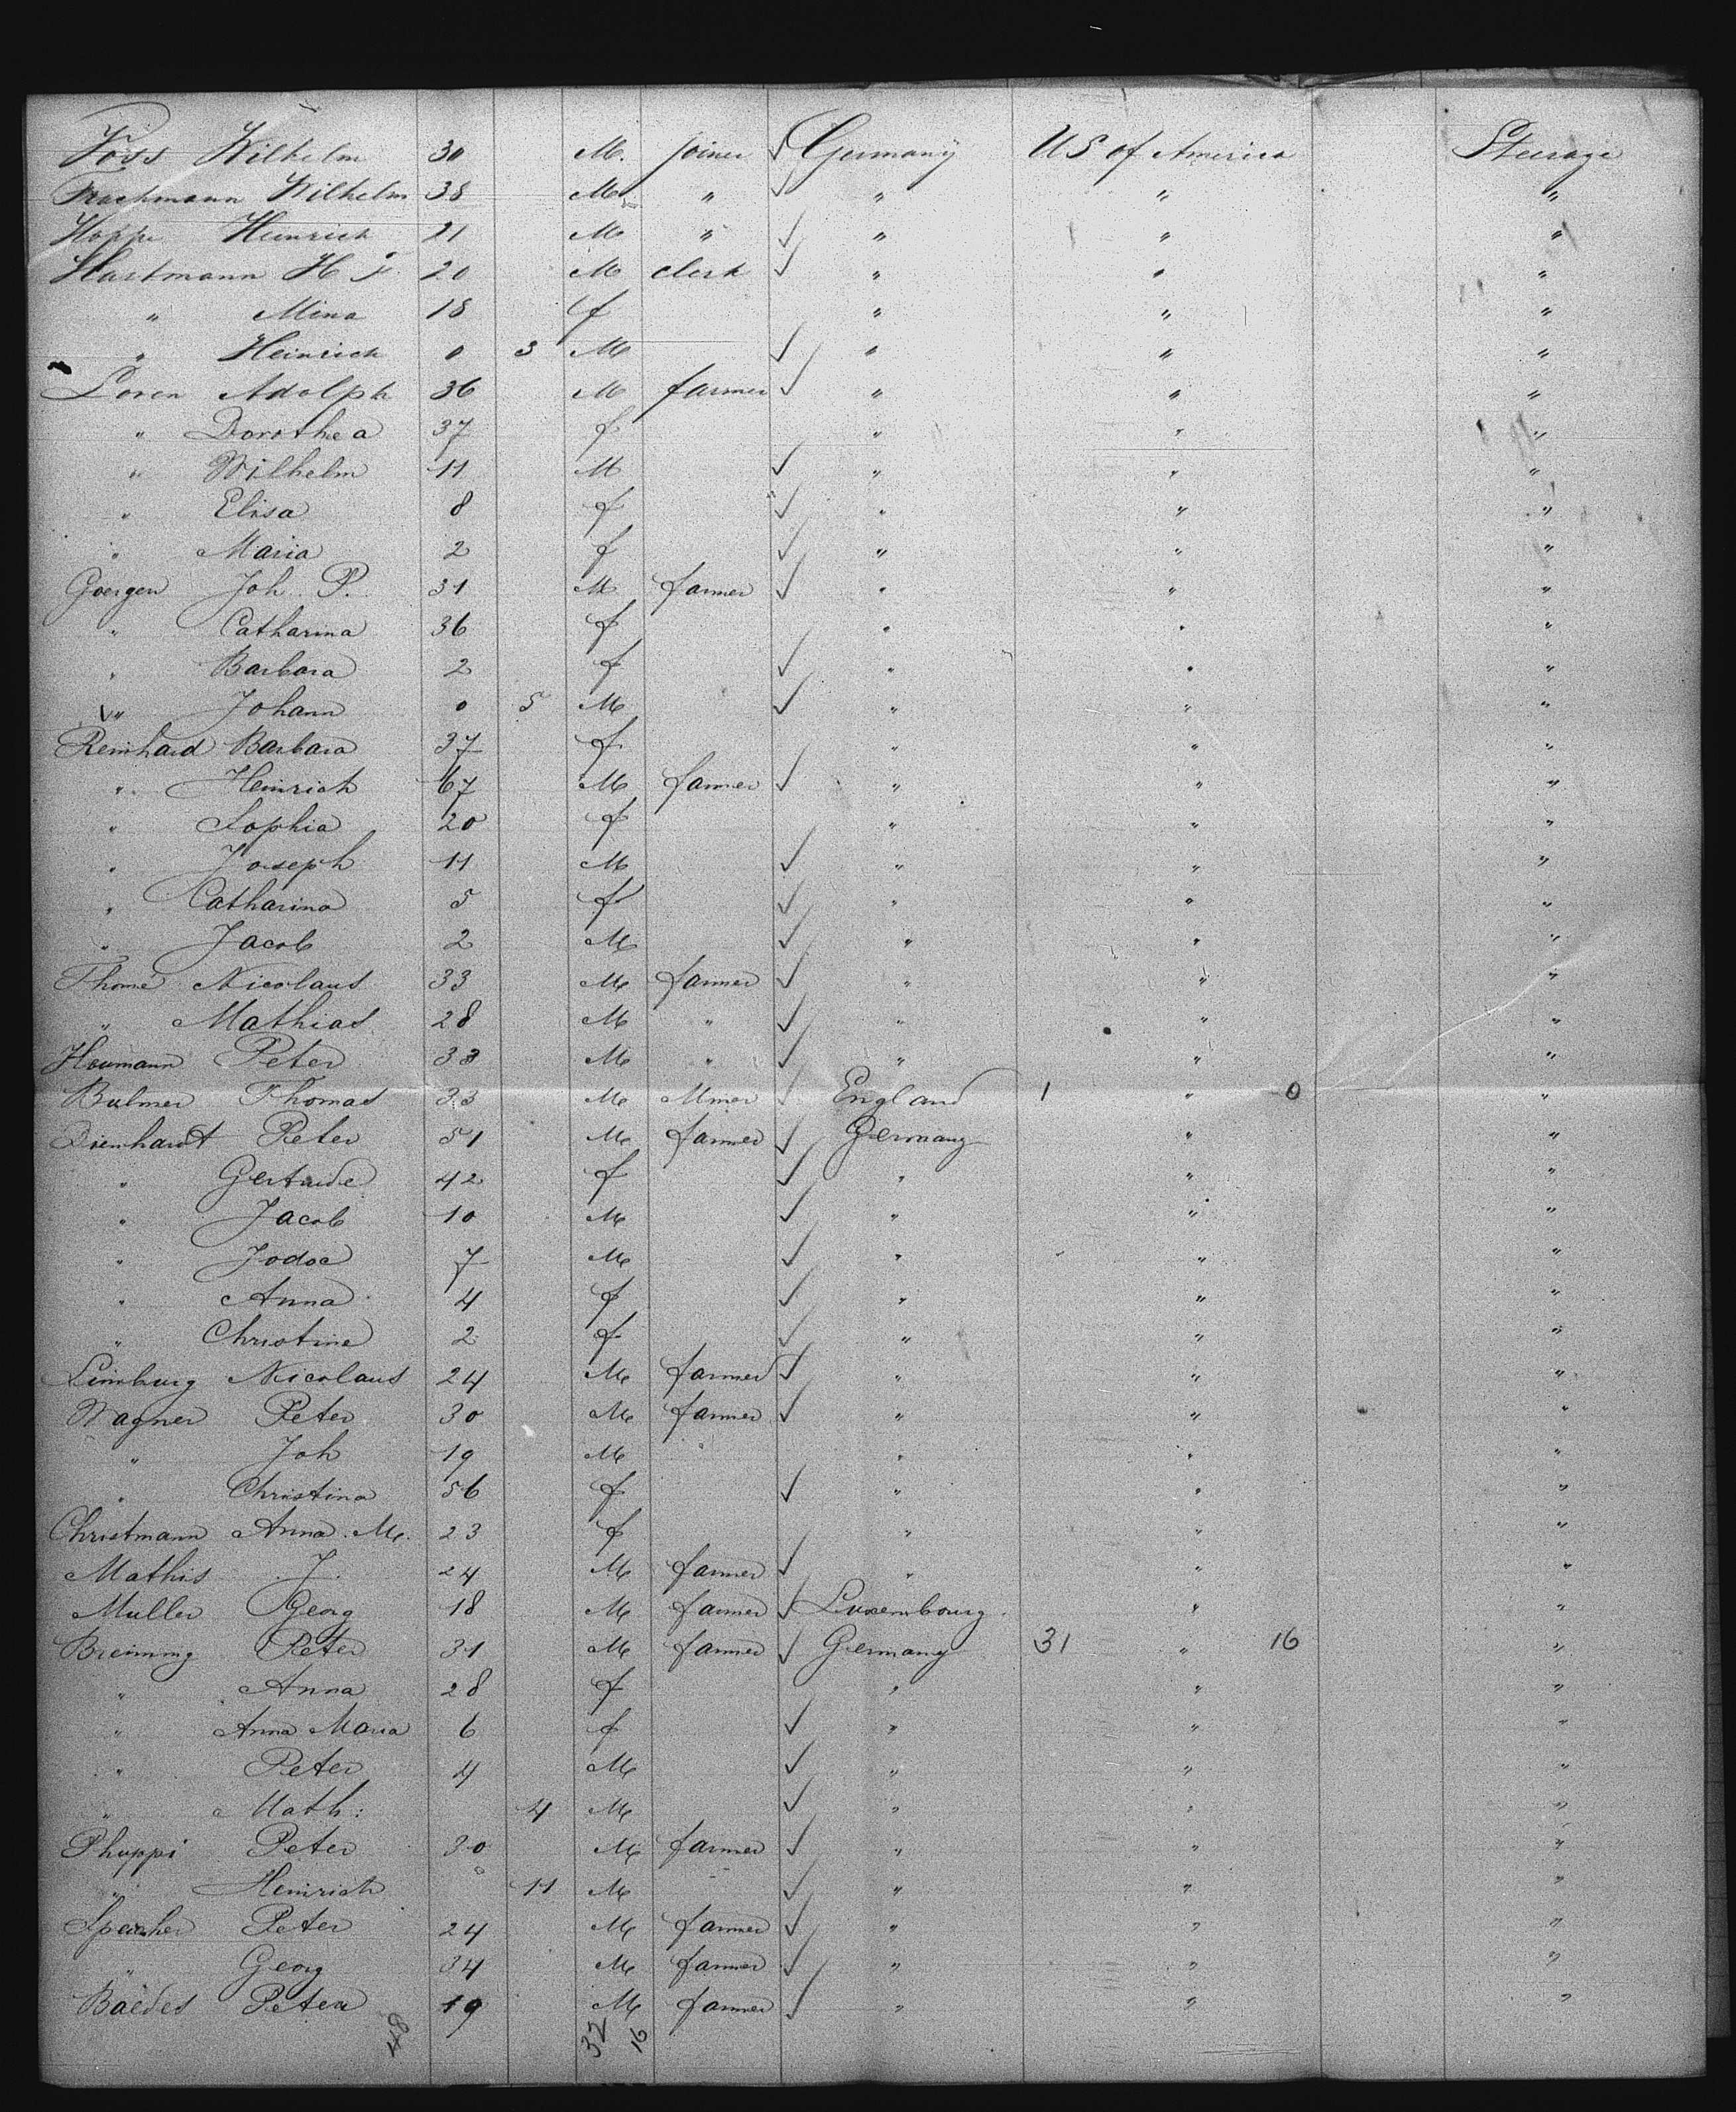 Voss Wilhelm 30 M. joiner ✓ Germany US of America Steerage
Trackmann Wilhelm 38 M " ✓ " " "
Hoppe Heinrich 21 M " ✓ " " "
Hartmann H F. 20 M clerk ✓ " " "
" Mina 18 f " " "
" Heinrich 0 3 M ✓ " " "
Loren Adolph 36 M farmer ✓ " " "
" Dorothea 37 f " " "
" Wilhelm 11 M ✓ " " "
" Elisa 8 f ✓ " " "
" Maria 2 f ✓ " " "
Goergen Joh. P. 31 M farmer ✓ " " "
" Catharina 36 f " " "
" Barbara 2 f ✓ " " "
" Johann 0 5 M ✓ " " "
Reinhard Barbara 37 f " " "
" Heinrich 67 M farmer ✓ " " "
" Sophia 20 f " " "
" Joseph 11 M ✓ " " "
" Catharina 5 f ✓ " " "
" Jacob 2 M ✓ " " "
Thomé Nicolaus 33 M farmer ✓ " " "
" Mathias 28 M " ✓ " " "
Heumann Peter 33 M " ✓ " " "
Bulmer Thomas 33 M Miner ✓ England 1 " 0 "
Dienhardt Peter 51 M farmer ✓ Germany " "
" Gertrude 42 f ✓ " " "
" Jacob 10 M ✓ " " "
" Jodoc 7 M ✓ " " "
" Anna 4 f ✓ " " "
" Christine 2 f ✓ " " "
Limburg Nicolaus 24 M farmer ✓ " " "
Wagner Peter 30 M farmer ✓ " " "
" Joh 19 M " " " "
" Christina 56 f ✓ " " "
Christmann Anna M. 23 f " " "
Mathis J. 24 M farmer ✓ " " "
Muller Georg 18 M farmer ✓ Luxembourg " "
Breining Peter 31 M farmer ✓ Germany 31 " 16 "
" Anna 28 f " " "
" Anna Maria 6 f ✓ " " "
" Peter 4 M ✓ " " "
" Math: 4 M ✓ " " "
Phuppi Peter 30 M farmer ✓ " " "
" Heinrich 11 M ✓ " " "
Speicher Peter 24 M farmer ✓ " " "
" Georg 34 M farmer ✓ " " "
Baedes Peter 19 M farmer ✓ " " "
48 32 16